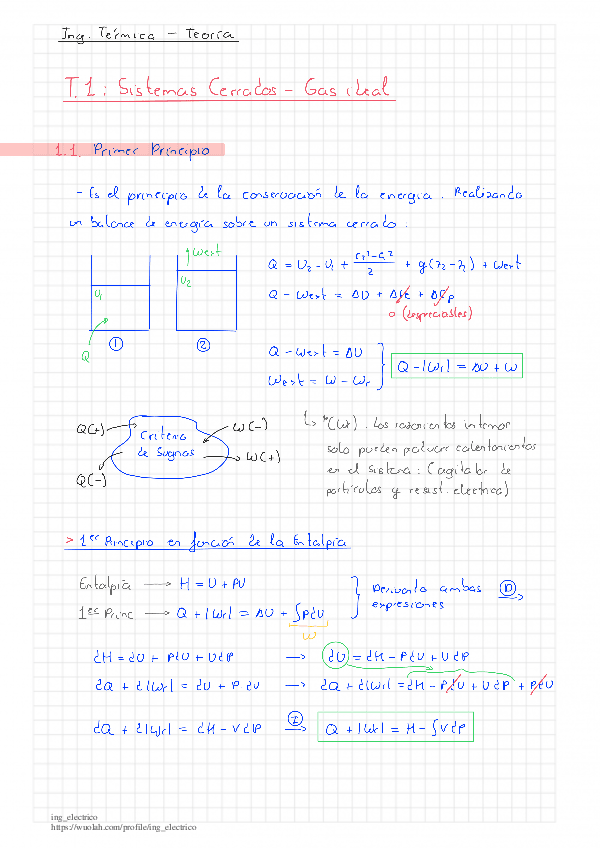 Ing. Térmica – Teoría
T.1: Sistemas Cerrados – Gas ideal
1.1. Primer Principio
- Es el principio de la conservación de la energía. Realizando
un balance de energía sobre un sistema cerrado.
Wext
U1
U2
Q
① ②
Q = U2 - U1 + (c2² - c1²)/2 + g(z2 - z1) + Wext
Q - Wext = ΔU + ΔEc + ΔEp
0 (despreciables)
Q - Wext = ΔU
Wext = W - Wr
Q - |Wr| = ΔU + W
Q(+)
Q(-)
Criterio
de Signos
W(-)
W(+)
*(Wr). Los rozamientos internos
solo pueden producir calentamientos
en el sistema: (agitador de
partículas y resist. electrica)
> 1er Principio en función de la Entalpía
Entalpía → H = U + PV
1er Princ → Q + |Wr| = ΔU + ∫PdV
W
Derivando ambas
expresiones
D
dH = dU + PdV + VdP → dU = dH - PdV + VdP
dQ + d|Wr| = dU + PdV → dQ + d|Wr| = dH - PdV + VdP + PdV
dQ + d|Wr| = dH - VdP I Q + |Wr| = H - ∫VdP
ing_electrico
https://wuolah.com/profile/ing_electrico